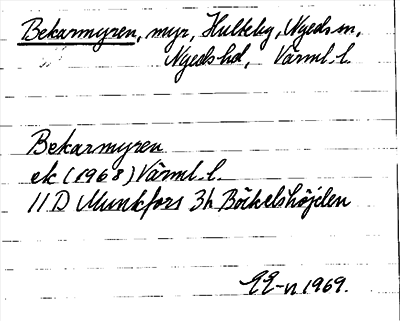 Bekarmyren, myr, Hulteby, Nyeds sn,
Nyeds hd, Värml. l.
Bekarmyren
ek (1968) Värml. l.
11D Munkfors 3h Böckelshöjden
EE-n 1969.